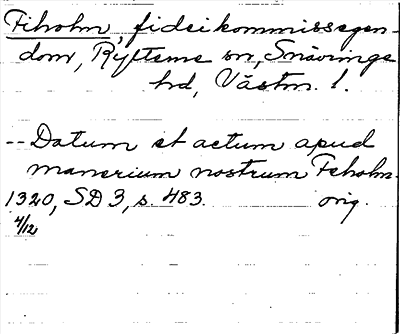 Fiholm, fideikommissegen-
dom, Rytterne sn, Snävringe
hd, Västm. l.
-- Datum et actum apud
manerium nostrum Feholm.
1320, SD 3, s. 483. orig.
4/12